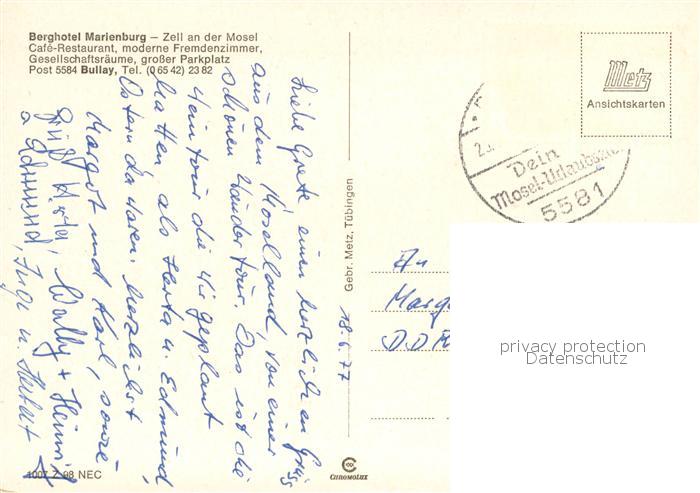 Berghotel Marienburg – Zell an der Mosel
Café-Restaurant, moderne Fremdenzimmer,
Gesellschaftsräume, großer Parkplatz
Post 5584 Bullay, Tel. (0 65 42) 23 82
Liebe Grete einen herzlichen Gruß
aus dem Moselland, von einer
schönen Wandertour. Das ist die
Weintour die wir geplant
hatten als Herta u. Edmund
Ostern da waren. Herzlichst
Margot und Karl, sowie
Grüße Herta, Wally + Heinrich
Edmund, Inge u. Herbert
1007 Z 98 NEC
Gebr. Metz, Tübingen
18.6.77
CHROMOLUX
Metz
Ansichtskarten
Dein
5581
An
Marg
DDR
privacy protection
Datenschutz